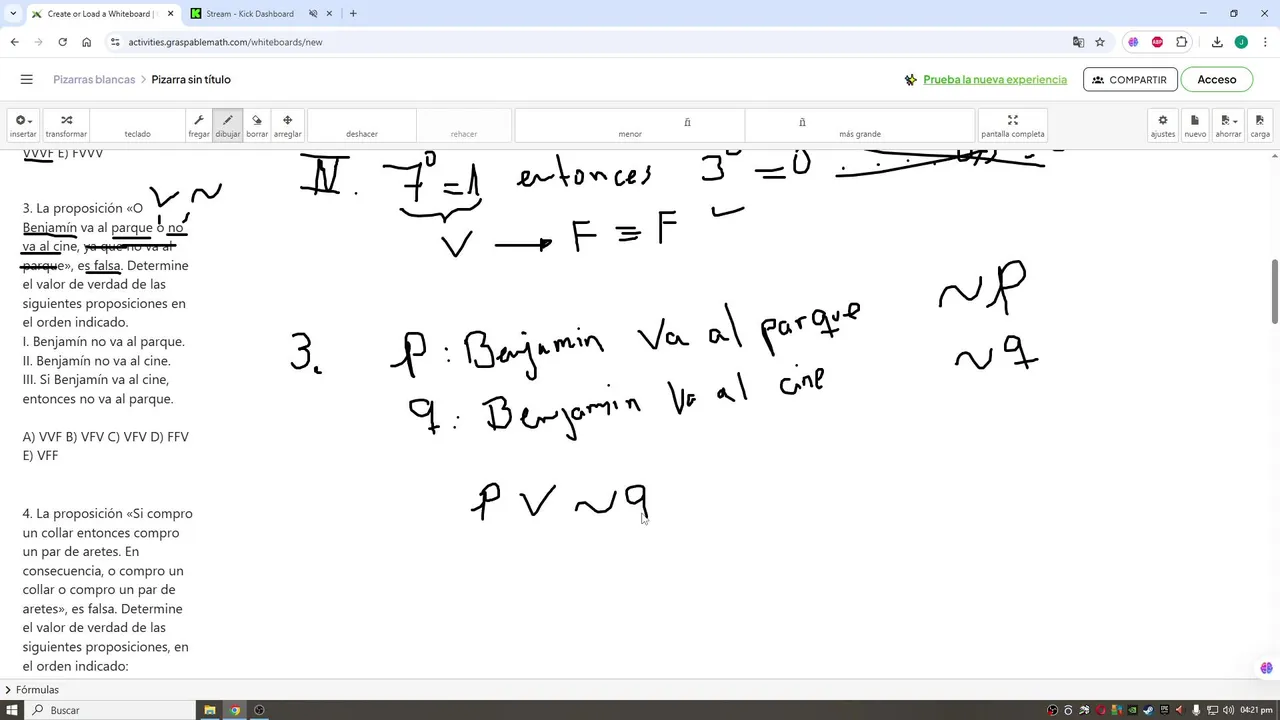 Create or Load a Whiteboard |
Stream - Kick Dashboard
activities.graspablemath.com/whiteboards/new
Pizarras blancas > Pizarra sin título
Prueba la nueva experiencia
COMPARTIR
Acceso
insertar transformar teclado fregar dibujar borrar arreglar deshacer rehacer menor más grande pantalla completa ajustes nuevo ahorrar carga
VVVF E) FVVV
IV. 7⁰ = 1 entonces 3⁰ = 0
V → F ≡ F
V ~
3. La proposición «O
Benjamín va al parque o no
va al cine, ya que no va al
parque», es falsa. Determine
el valor de verdad de las
siguientes proposiciones en
el orden indicado.
I. Benjamín no va al parque.
II. Benjamín no va al cine.
III. Si Benjamín va al cine,
entonces no va al parque.
A) VVF B) VFV C) VFV D) FFV
E) VFF
3. p : Benjamin va al parque ~p
q : Benjamin va al cine ~q
p V ~q
4. La proposición «Si compro
un collar entonces compro
un par de aretes. En
consecuencia, o compro un
collar o compro un par de
aretes», es falsa. Determine
el valor de verdad de las
siguientes proposiciones, en
el orden indicado:
Fórmulas
Buscar
04:21 pm